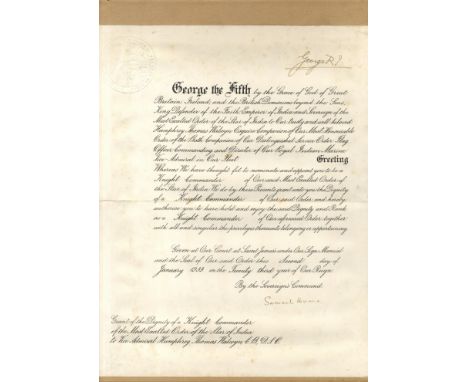 George R.I.
George the Fifth by the Grace of God of Great
Britain, Ireland, and the British Dominions beyond the Seas,
King, Defender of the Faith, Emperor of India and Sovereign of the
Most Exalted Order of the Star of India to Our trusty and well beloved
Humphrey Thomas Walwyn Esquire Companion of Our Most Honourable
Order of the Bath Companion of Our Distinguished Service Order Flag
Officer Commanding and Director of Our Royal Indian Marine
Vice Admiral in Our Fleet Greeting
Whereas We have thought fit to nominate and appoint you to be a
Knight Commander of Our said Most Exalted Order of
the Star of India We do by these Presents grant unto you the Dignity
of a Knight Commander of Our said Order and hereby
authorise you to have hold and enjoy the said Dignity and Rank
as a Knight Commander of Our aforesaid Order together
with all and singular the privileges thereunto belonging or appertaining.
Given at Our Court at Saint James under Our Sign Manual
and the Seal of Our said Order this Second day of
January 1933 in the Twenty third year of Our Reign
By the Sovereign's Command.
Samuel Hoare
Grant of the Dignity of a Knight Commander
of the Most Exalted Order of the Star of India
to Vice Admiral Humphrey Thomas Walwyn C.B., D.S.O.